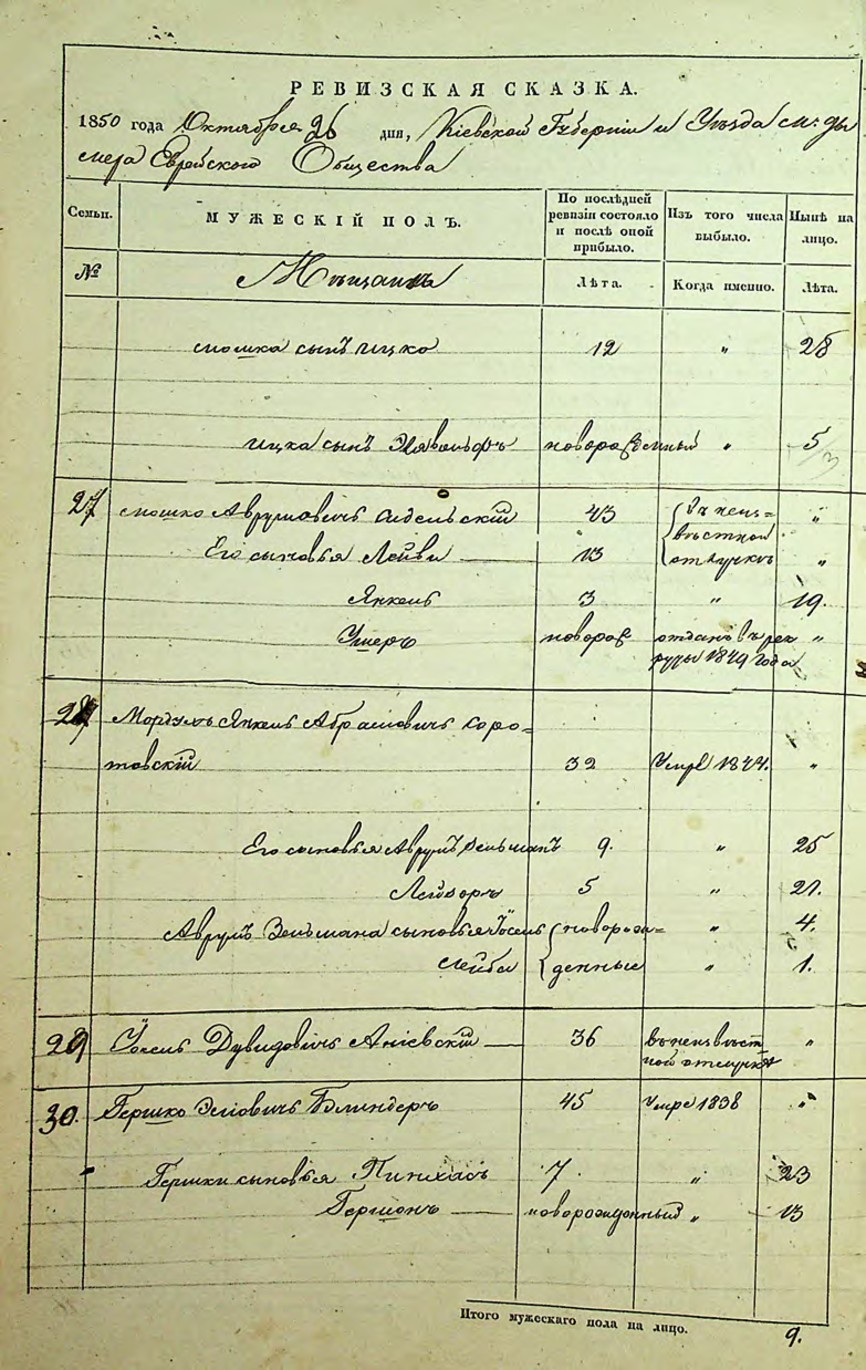 РЕВИЗСКАЯ СКАЗКА.
1850 года Октября 26 дня, Кіевской Губерніи и Уѣзда м: Ды
мера Еврейского Общества
Семьи. МУЖЕСКІЙ ПОЛЪ. По послѣдней ревизіи состояло и послѣ оной прибыло. Изъ того числа выбыло. Нынѣ на лицо.
№ Мѣщанъ Лѣта. Когда именно. Лѣта.
Мошка сынъ Ицко 12 " 28
Ицка сынъ новорожденный " 5
27 Мошко Аврумовичъ 43 въ неиз= "
Его сыновья Лейби 13 вѣстной отлучкѣ "
Янкель 3 " 19.
Ушеръ новорож отданъ въ рек "
руты 1849 года
28 Мордухъ Янкель Абрамовичъ Коро=
товскій 32 Умре 1844. "
Его сыновья Аврумъ Зельманъ 9. " 25
Лейзоръ 5 " 21.
Аврумъ Зельмана сыновья Іосель новорож= " 4.
Лейба денные " 1.
29 Іосель Дувидовичъ Аніевскій 36 въ неизвѣст "
ной отлучкѣ
30. Гершко Бѣлиндеръ 45 Умре 1838 "
Гершки сыновья Пинхасъ 7. " 23
Гершонъ новорожденный " 13
Итого мужескаго пола на лицо. 9.